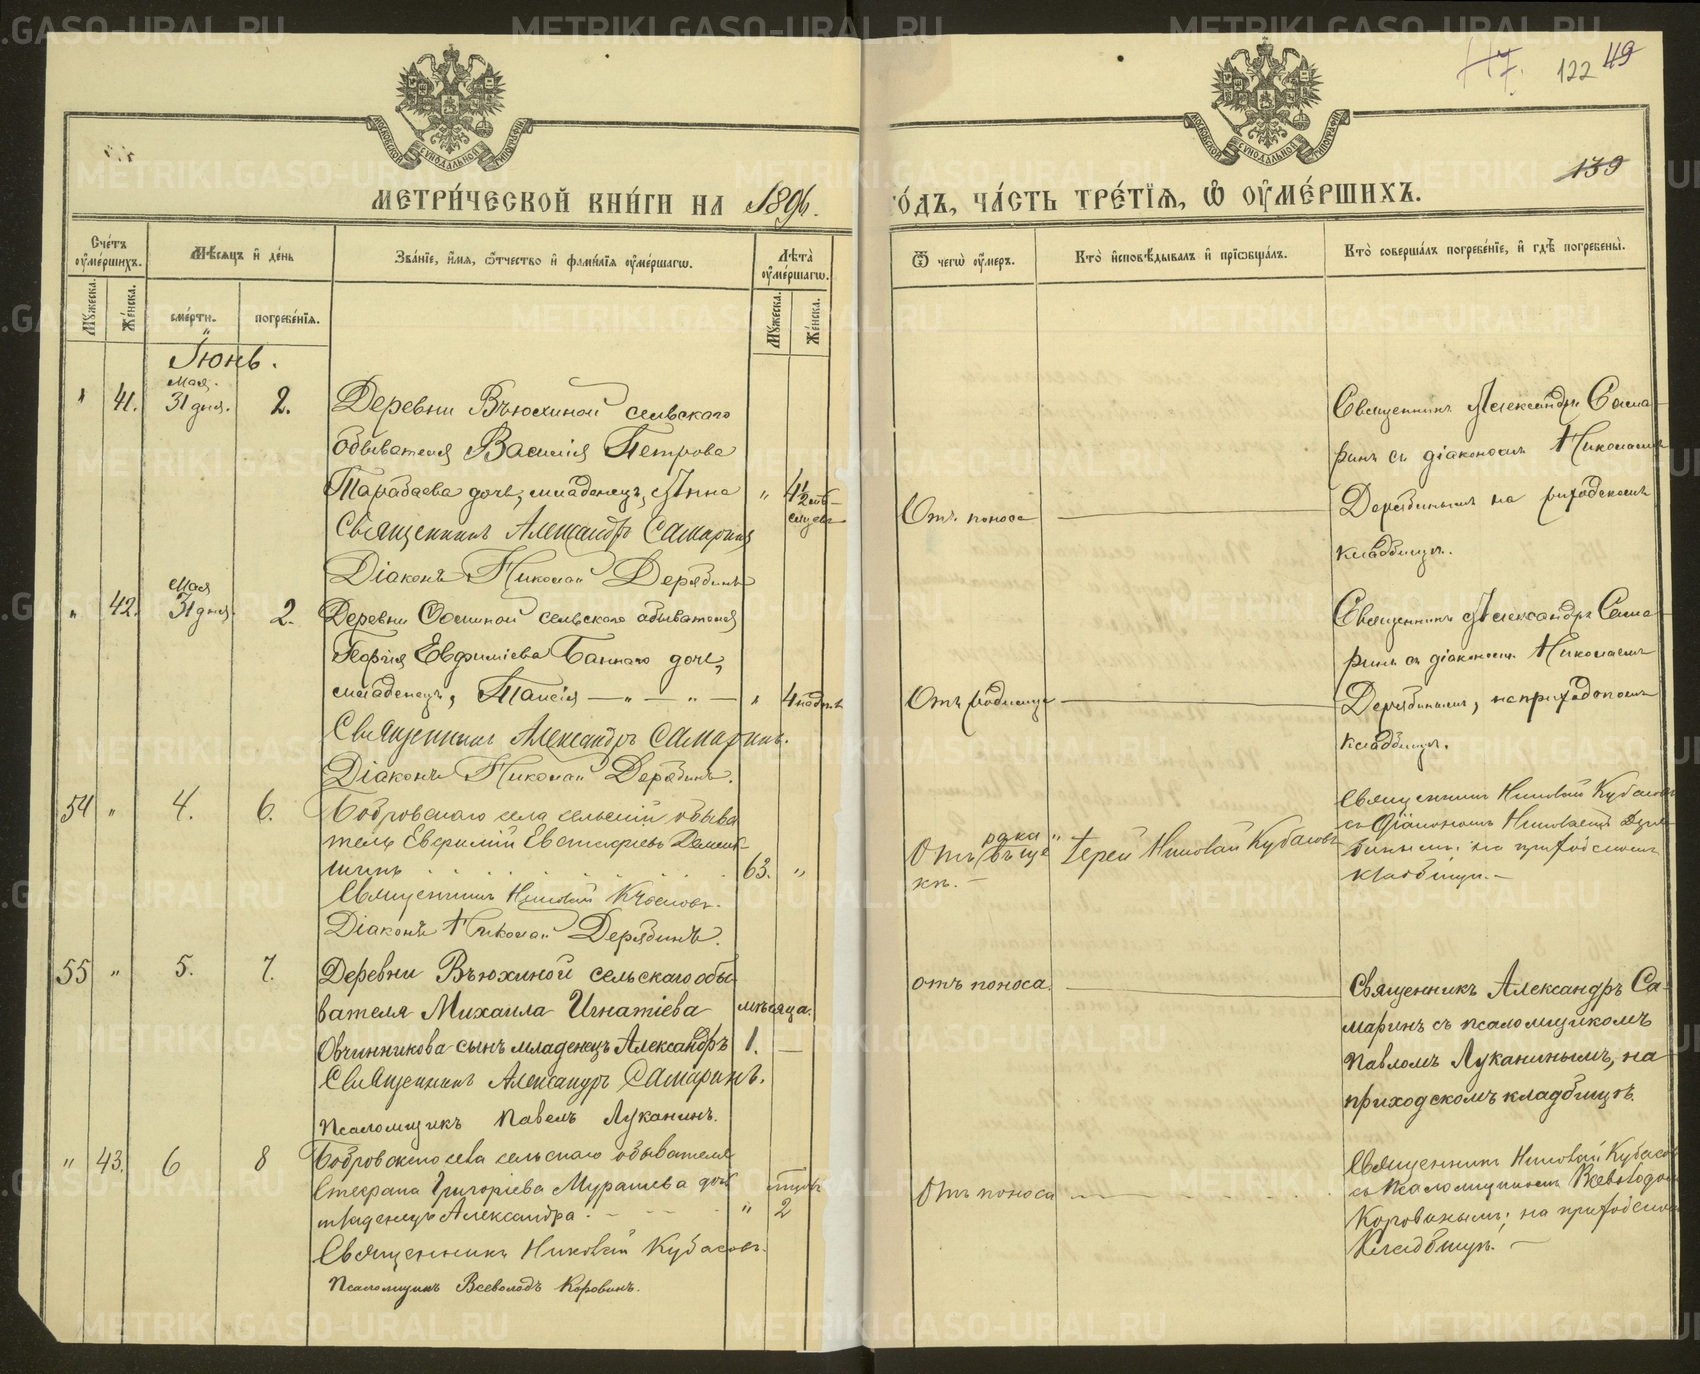 47. 122 49
139
МЕТРИ́ЧЕСКОЙ КНИ́ГИ НА 1896.
ГО́ДЪ, ЧА́СТЬ ТРЕ́ТЇѦ, Ѡ҆ ОУ҆МЕ́РШИХЪ.
Сче́тъ оу҆ме́ршихъ.
Мѣ́сѧцъ и҆ де́нь
Зва́нїе, и҆́мѧ, ѻ҆́тчество и҆ фами́лїѧ оу҆ме́ршагѡ.
Лѣта̀ оу҆ме́ршагѡ.
Ѿ чегѡ̀ оу҆́меръ.
Кто̀ и҆сповѣ́дывалъ и҆ прїѡбща́лъ.
Кто̀ соверша́лъ погребе́нїе, и҆ гдѣ̀ погребены̀.
Мꙋ́жеска.
Же́нска.
сме́рти.
погребе́нїѧ.
Мꙋ́жеска.
Же́нска.
Іюнь.
" 41. Мая 31 дня. 2.
Деревни Вьюхиной сельского
обывателя Василія Петрова
Тарабаева дочь, младенецъ, Анна " 4 1/2 мѣсяцевъ
Священникъ Александръ Самаринъ
Діаконъ Николай Дерябинъ
Отъ поноса
Священникъ Александръ Сама
ринъ съ діакономъ Николаемъ
Дерябинымъ на приходскомъ
кладбищѣ.
" 42. Мая 31 дня. 2.
Деревни Ѳоминой сельского обывателя
Георгія Евфиміева Баннаго дочь,
младенецъ, Таисія — " — " — " 4 недѣль
Священникъ Александръ Самаринъ.
Діаконъ Николай Дерябинъ.
Отъ родимца
Священникъ Александръ Сама
ринъ съ діакономъ Николаемъ
Дерябинымъ, на приходскомъ
кладбищѣ.
54 " 4. 6.
Бобровскаго села сельскій обыва
тель Евфимій
63. "
Священникъ Николай Кубасовъ.
Діаконъ Николай Дерябинъ.
Отъ рака въ ще
кѣ. —
Іерей Николай Кубасовъ
Священникъ Николай Кубасовъ
съ Діакономъ Николаемъ Деря
бинымъ; на приходскомъ
кладбищѣ. —
55 " 5. 7.
Деревни Вьюхиной сельскаго обы
вателя Михаила Игнатіева мѣсяца.
Овчинникова сынъ младенецъ Александръ 1. —
Священникъ Александръ Самаринъ.
Псаломщикъ Павелъ Луканинъ.
отъ поноса.
Священникъ Александръ Са-
маринъ съ псаломщикомъ
Павломъ Луканинымъ, на
приходскомъ кладбищѣ.
" 43. 6 8
Бобровскаго села сельскаго обывателя
Стефана Григоріева Мурашева дочь
младенецъ Александра. " 2
Священникъ Николай Кубасовъ.
Псаломщикъ Всеволодъ Коровинъ.
Отъ поноса
Священникъ Николай Кубасовъ
съ Псаломщикомъ Всеволодомъ
Коровинымъ; на приходскомъ
Кладбищѣ. —
METRIKI.GASO-URAL.RU